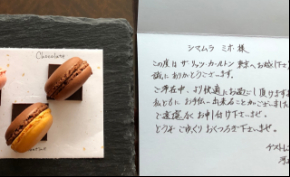 Chocolate
シマムラ ミオ 様
この度は ザ・リッツ・カールトン 東京へお越し下さ
誠にありがとうございます。
ご滞在中、より快適にお過ごし頂けますよ
私どもに お手伝い出来ることがございました
ご遠慮なく お申し付け下さいませ。
どうぞ ごゆっくり おくつろぎ下さいませ。
ゲストレ